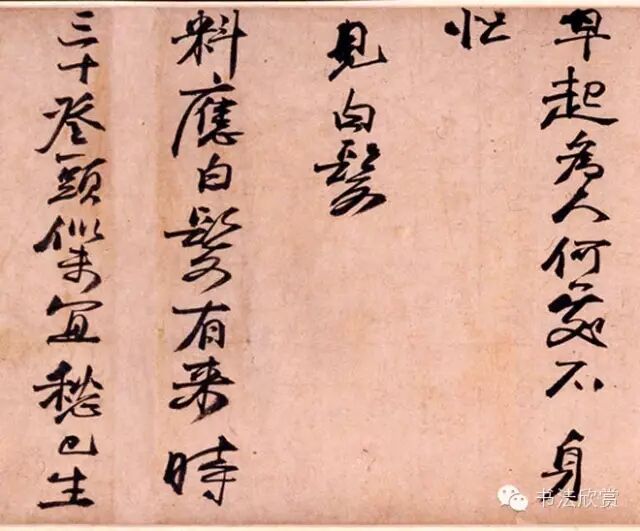 早起為人何處不身
忙
見白髮
料應白髮有来時
三十登頭宜愁已生
书法欣赏